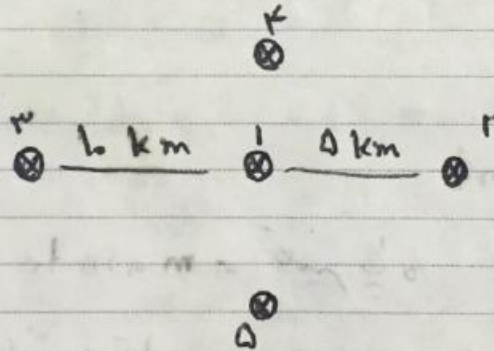 ۴
۳ ۱۰ km ۱ ۵ km ۲
۵